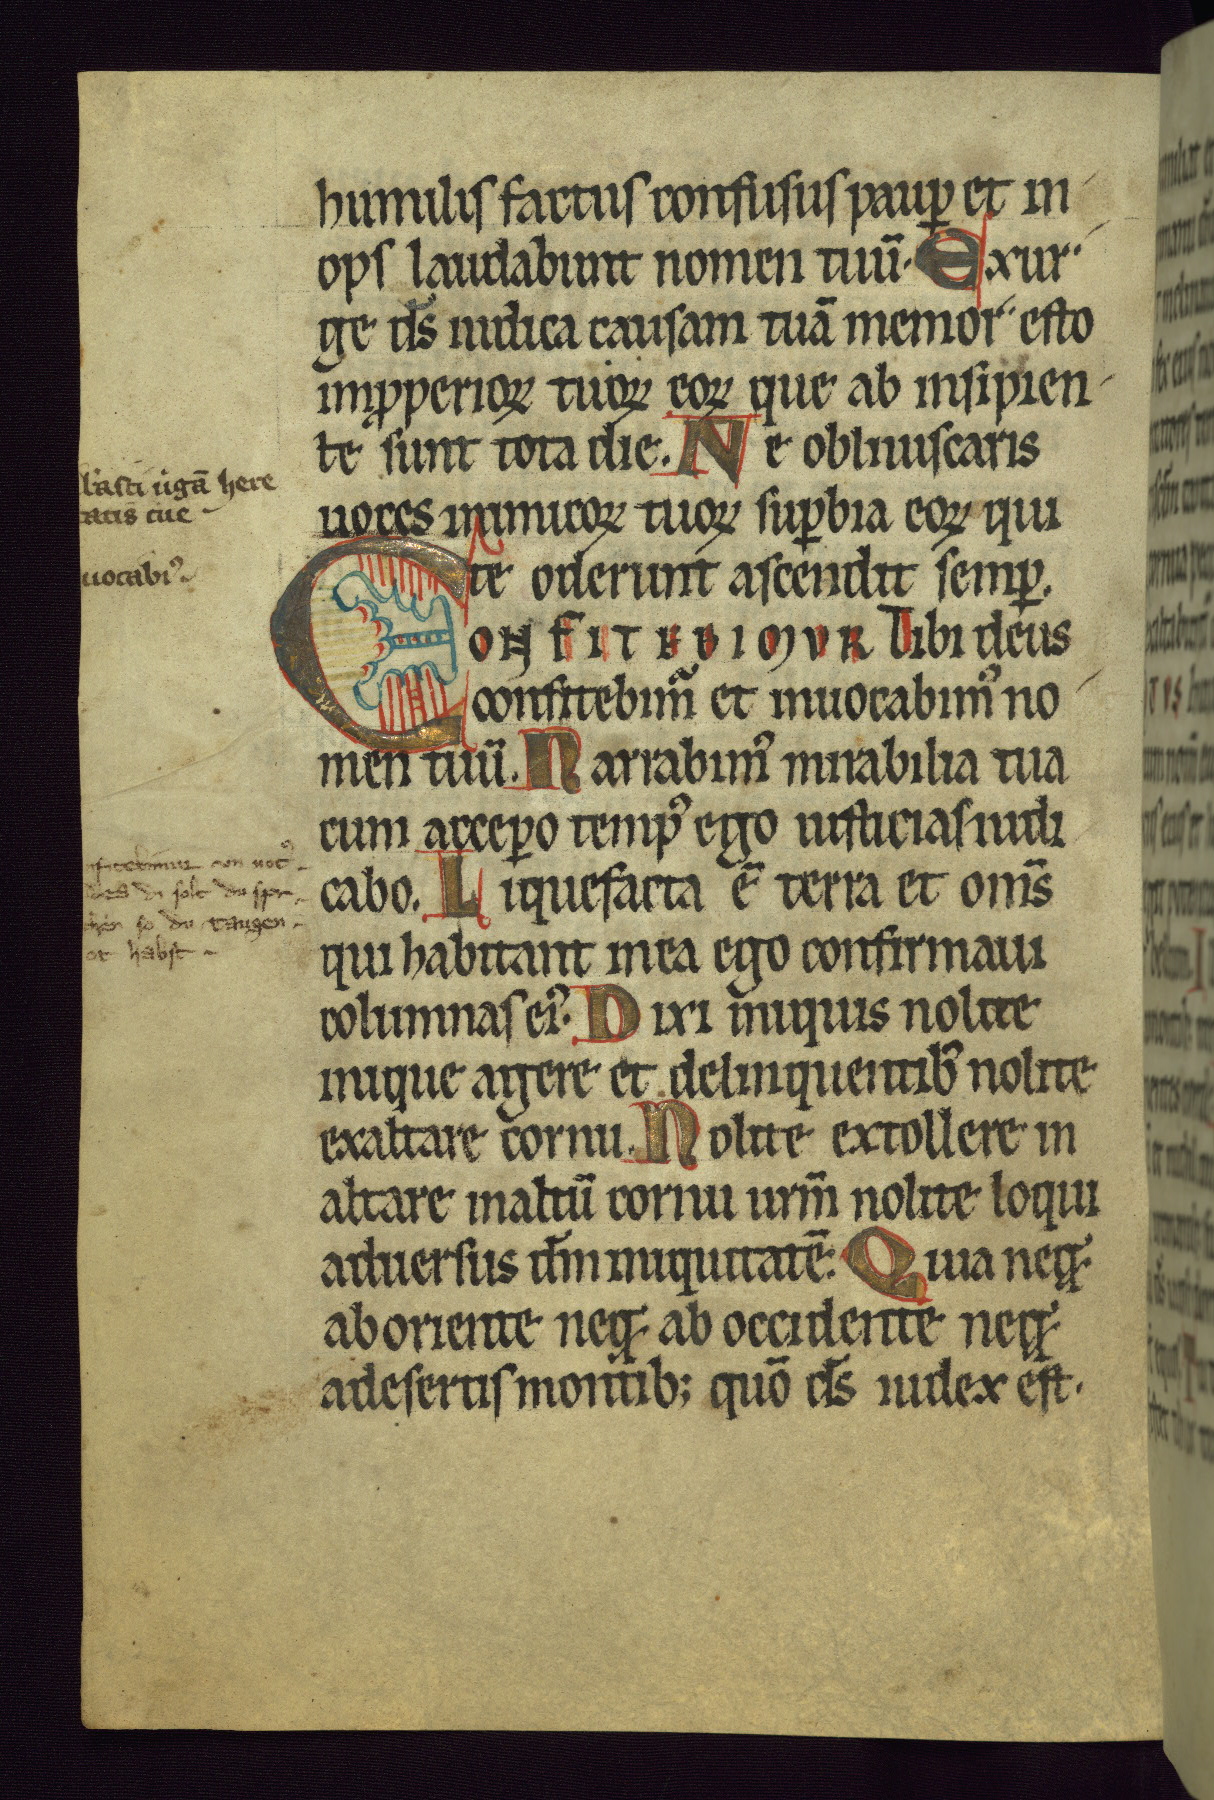 humilis factus confusus paup et in
ops laudabunt nomen tuū. Exur
ge d̄s iudica causam tuā memor esto
impperioꝝ tuoꝝ eoꝝ que ab insipien
te sunt tota die. Ne obliuiscaris
uoces inimicoꝝ tuoꝝ suꝑbia eoꝝ qui
te oderunt ascendit semꝑ.
CONFITEBIMUR Tibi deus
confitebim̄ et inuocabimꝰ no
men tuū. Narrabimꝰ mirabilia tua
cum acceꝑo tempꝰ ego iusticias iudi
cabo. Liquefacta ē terra et om̄s
qui habitant in ea ego confirmaui
columnas eiꝰ. Dixi iniquis nolite
inique agere et delinquentibꝰ nolite
exaltare cornu. Nolite extollere in
altare in altū cornu ur̄m nolite loqui
aduersus dm̄ iniquitatē. Quia neqꝫ
ab oriente neqꝫ ab occidente neqꝫ
a desertis montibꝫ quō d̄s iudex est.
uigā here
tatis tue
uocabiꝰ
du solt du
so du taugen
habst